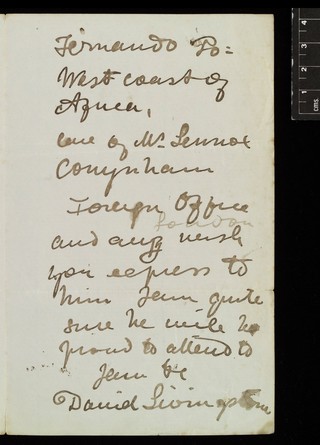 Fernando Po =
West coast of
Africa,
care of Mr Lennox
Conynham
Foreign Office
London
and any wish
you express to
him I am quite
sure he will be
proud to attend to
I am &c
David Livingstone
4
3
2
1
CMS.